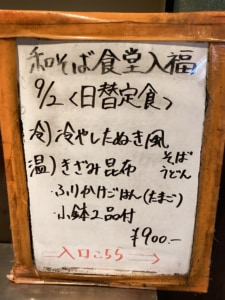 和そば食堂入福
9/2〈日替定食〉
冷)冷やしたぬき風
温)きざみ昆布 そば うどん
・ふりかけごはん(たまご)
・小鉢2品付
¥900.-
入口こちら→